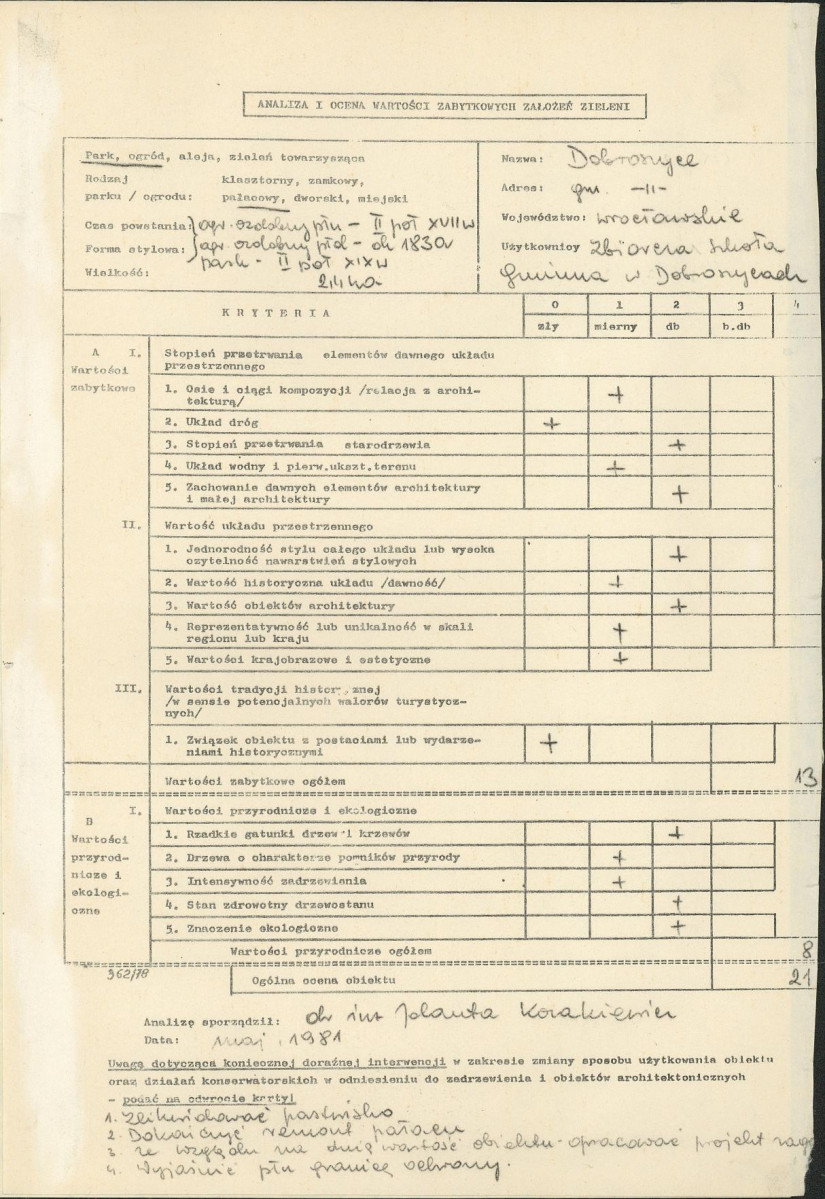 ANALIZA I OCENA WARTOŚCI ZABYTKOWYCH ZAŁOŻEŃ ZIELENI
Park, ogród, aleja, zieleń towarzysząca
Rodzaj klasztorny, zamkowy,
parku / ogrodu: pałacowy, dworski, miejski
Czas powstania: ogr. ozdobny płn - II poł XVII w
Forma stylowa: ogr. ozdobny płd - ok 1830
park - II poł XIX w
Wielkość:
Nazwa: Dobroszyce
Adres: gm. -II-
Województwo: wrocławskie
Użytkownicy Zbiorcza Szkoła
Gminna w Dobroszycach
KRYTERIA 0 1 2 3 4
zły mierny db b.db
A I. Stopień przetrwania elementów dawnego układu
Wartości przestrzennego
zabytkowe 1. Osie i ciągi kompozycji /relacja z archi-
tekturą/ +
2. Układ dróg +
3. Stopień przetrwania starodrzewia +
4. Układ wodny i pierw.ukszt.terenu +
5. Zachowanie dawnych elementów architektury
i małej architektury +
II. Wartość układu przestrzennego
1. Jednorodność stylu całego układu lub wysoka
czytelność nawarstwień stylowych +
2. Wartość historyczna układu /dawność/ +
3. Wartość obiektów architektury +
4. Reprezentatywność lub unikalność w skali
regionu lub kraju +
5. Wartości krajobrazowe i estetyczne +
III. Wartości tradycji historycznej
/w sensie potencjalnych walorów turystycz-
nych/
1. Związek obiektu z postaciami lub wydarze-
niami historycznymi +
Wartości zabytkowe ogółem 13
B I. Wartości przyrodnicze i ekologiczne
Wartości 1. Rzadkie gatunki drzew i krzewów +
przyrod- 2. Drzewa o charakterze pomników przyrody +
nicze i 3. Intensywność zadrzewienia +
ekologi- 4. Stan zdrowotny drzewostanu +
czne 5. Znaczenie ekologiczne +
Wartości przyrodnicze ogółem 8
362/78 Ogólna ocena obiektu 21
Analizę sporządził: dr inż Jolanta
Data: maj 1981
Uwagę dotycząca koniecznej doraźnej interwencji w zakresie zmiany sposobu użytkowania obiektu
oraz działań konserwatorskich w odniesieniu do zadrzewienia i obiektów architektonicznych
- podać na odwrocie karty!
1. Zlikwidować pastwisko
2. Dokończyć remont pałacu
3. ze względu na dużą wartość obiektu opracować projekt
4. Wyjaśnić płn granicę ochrony.